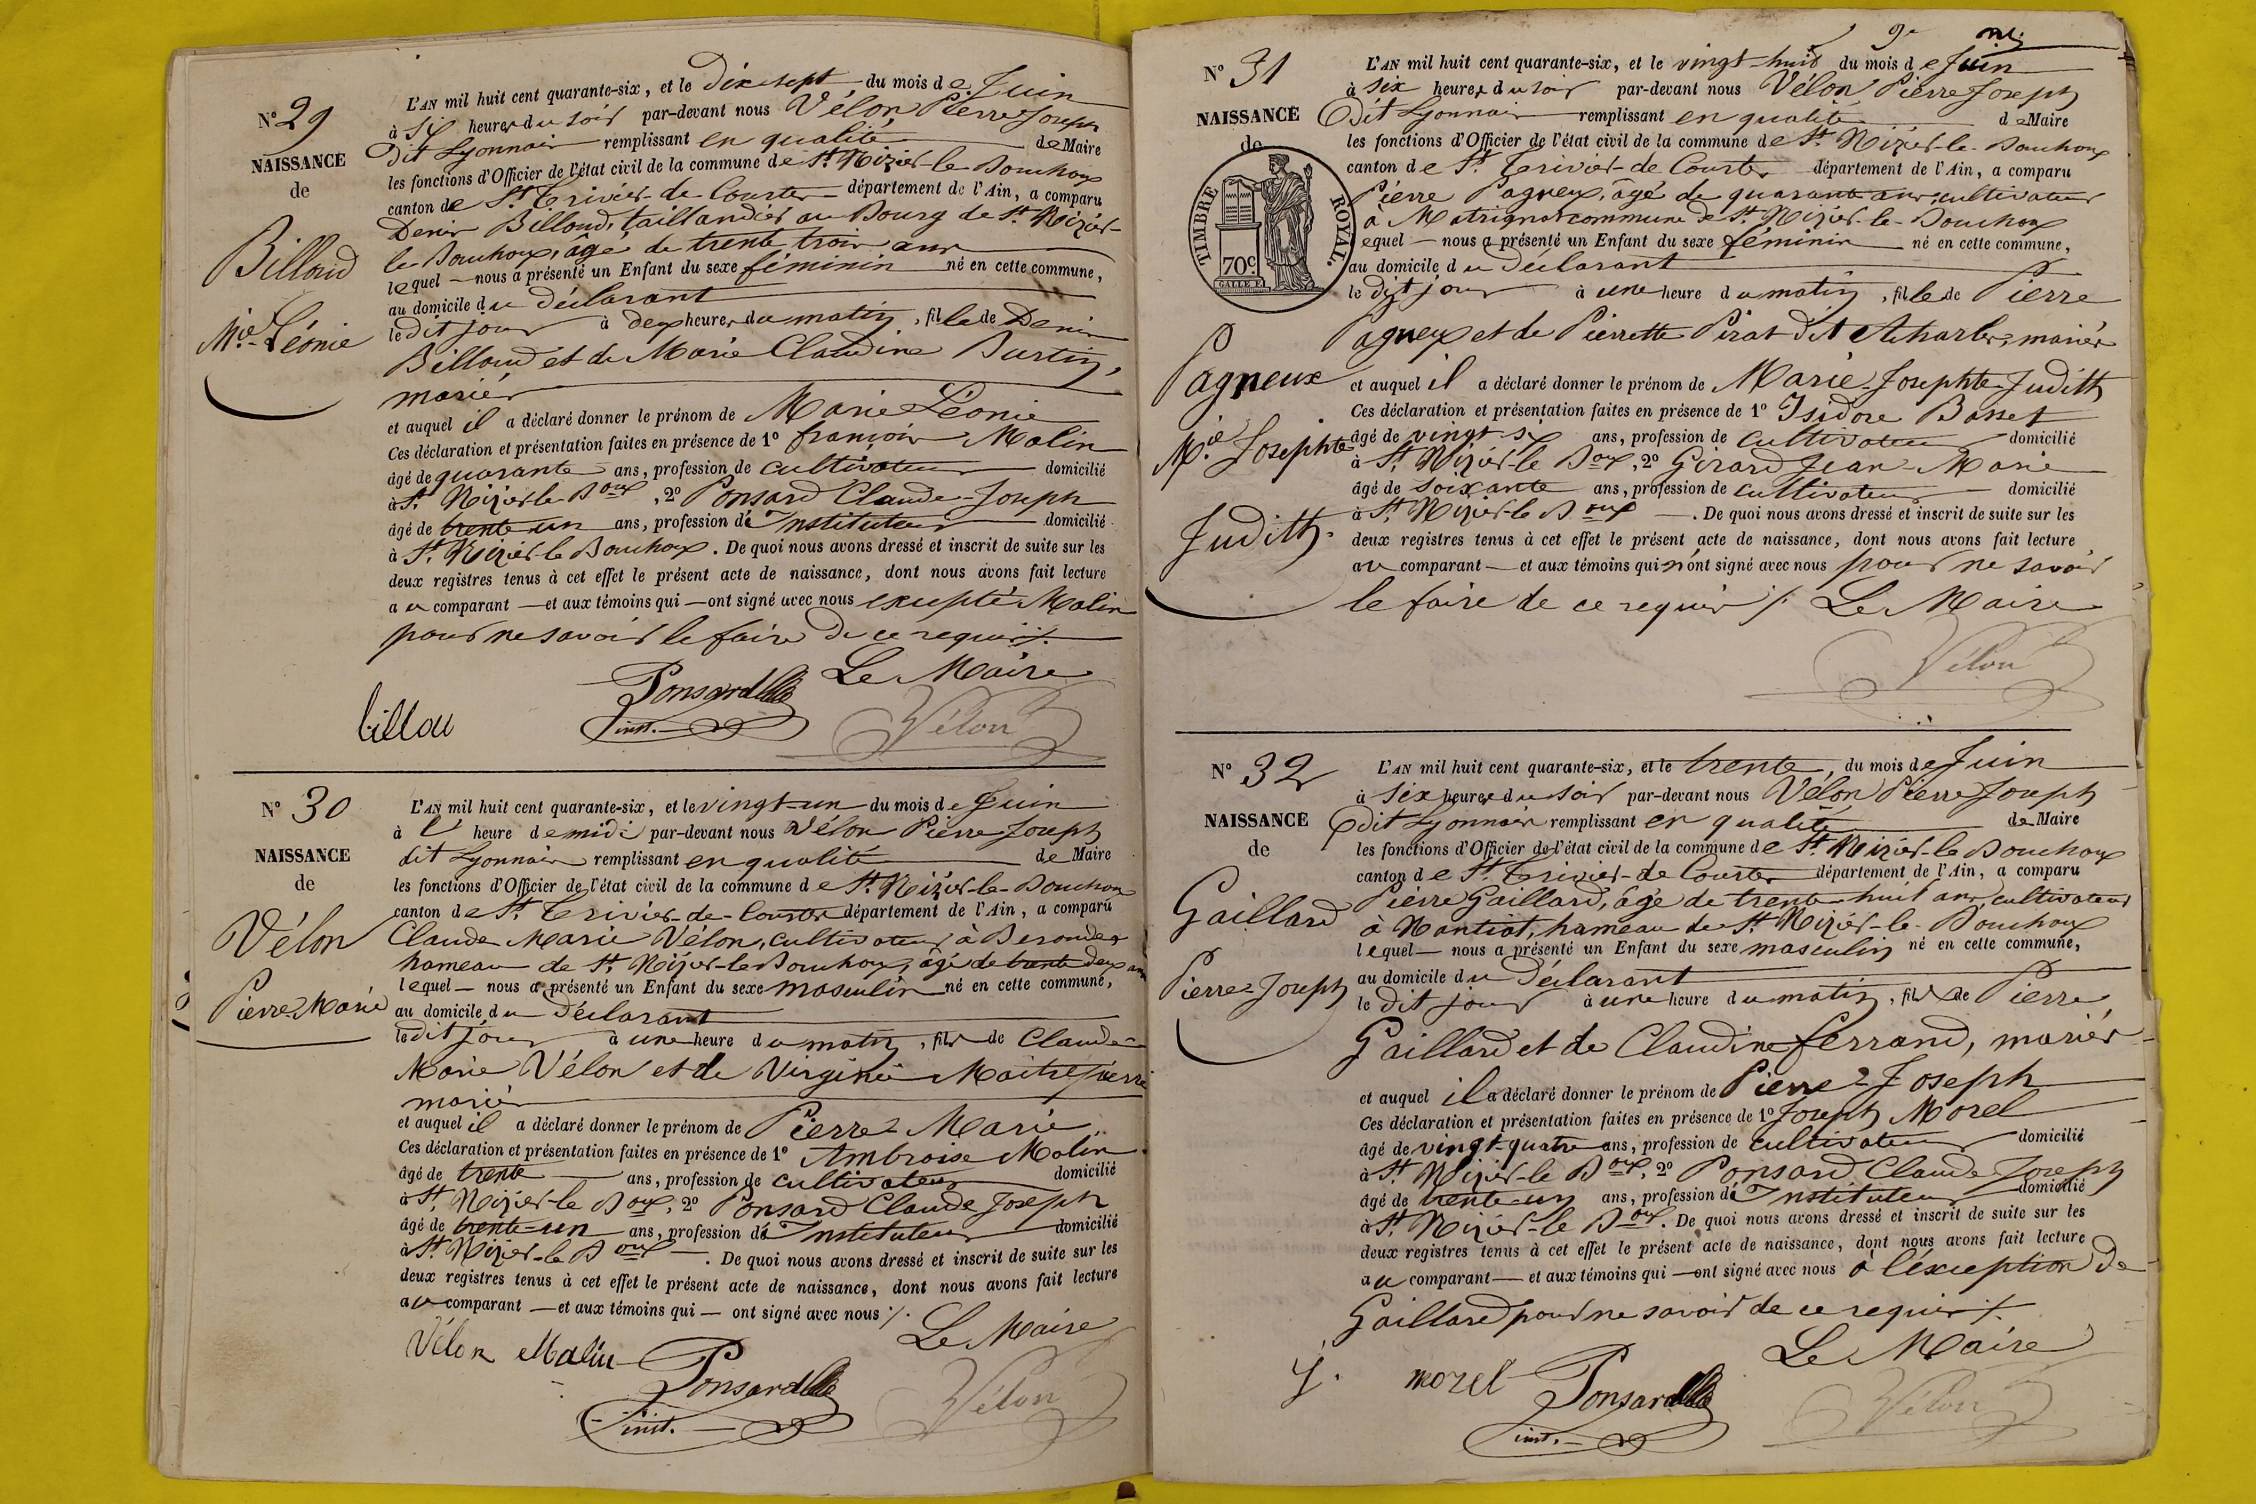 N° 29
NAISSANCE
de
Billoud
Mie. Léonie
L'AN mil huit cent quarante-six, et le dix sept du mois de Juin
à six heures du soir par-devant nous Vélon Pierre Joseph
dit Lyonnais remplissant en qualité de Maire
les fonctions d'Officier de l'état civil de la commune de St. Nizier-le-Bouchoux
canton de St. Trivier-de-Courtes département de l'Ain, a comparu
Denis Billoud, taillandier au Bourg de St. Nizier-
le-Bouchoux, âgé de trente trois ans
lequel nous a présenté un Enfant du sexe féminin né en cette commune,
au domicile du Déclarant
le dit jour à deux heures du matin, fille de Denis
Billoud et de Marie Claudine Burtin,
mariés
et auquel il a déclaré donner le prénom de Marie Léonie
Ces déclaration et présentation faites en présence de 1° françois Molin
âgé de quarante ans, profession de cultivateur domicilié
à St. Nizier-le-Boux, 2° Ponsard Claude-Joseph
âgé de trente-un ans, profession d'Instituteur domicilié
à St. Nizier-le-Bouchoux. De quoi nous avons dressé et inscrit de suite sur les
deux registres tenus à cet effet le présent acte de naissance, dont nous avons fait lecture
au comparant et aux témoins qui ont signé avec nous excepté Molin
pour ne savoir le faire de ce requis ./.
Le Maire
billou Ponsard inst. Vélon
N° 30
NAISSANCE
de
Vélon
Pierre-Marie
L'AN mil huit cent quarante-six, et le vingt-un du mois de Juin
à l' heure de midi par-devant nous Vélon Pierre Joseph
dit Lyonnais remplissant en qualité de Maire
les fonctions d'Officier de l'état civil de la commune de St. Nizier-le-Bouchoux
canton de St. Trivier-de-Courtes département de l'Ain, a comparu
Claude Marie Vélon, cultivateur à
hameau de St. Nizier-le-Bouchoux, âgé de trente deux ans
lequel nous a présenté un Enfant du sexe masculin né en cette commune,
au domicile du Déclarant
le dit jour à une heure du matin, fils de Claude
Marie Vélon et de Virginie Maitrepierre
mariés
et auquel il a déclaré donner le prénom de Pierre Marie
Ces déclaration et présentation faites en présence de 1° Ambroise Molin
âgé de trente ans, profession de cultivateur domicilié
à St. Nizier-le-Boux, 2° Ponsard Claude Joseph
âgé de trente-un ans, profession d'Instituteur domicilié
à St. Nizier-le-Boux. De quoi nous avons dressé et inscrit de suite sur les
deux registres tenus à cet effet le présent acte de naissance, dont nous avons fait lecture
au comparant et aux témoins qui ont signé avec nous ./.
Le Maire
Vélon Molin Ponsard inst. Vélon
9e
N° 31
NAISSANCE
de
TIMBRE ROYAL.
70c
Pagneux
Mie. Josephte
Judith.
L'AN mil huit cent quarante-six, et le vingt-huit du mois de Juin
à six heures du soir par-devant nous Vélon Pierre Joseph
dit Lyonnais remplissant en qualité de Maire
les fonctions d'Officier de l'état civil de la commune de St. Nizier-le-Bouchoux
canton de St. Trivier-de-Courtes département de l'Ain, a comparu
Pierre Pagneux, âgé de quarante ans, cultivateur
à Matrignat commune de St. Nizier-le-Bouchoux
lequel nous a présenté un Enfant du sexe féminin né en cette commune,
au domicile du Déclarant
le dit jour à une heure du matin, fille de Pierre
Pagneux et de Pierrette Pirat dit mariés
et auquel il a déclaré donner le prénom de Marie-Josephte-Judith
Ces déclaration et présentation faites en présence de 1° Isidore Basset
âgé de vingt-six ans, profession de cultivateur domicilié
à St. Nizier-le-Boux, 2° Girard Jean-Marie
âgé de soixante ans, profession de cultivateur domicilié
à St. Nizier-le-Boux. De quoi nous avons dressé et inscrit de suite sur les
deux registres tenus à cet effet le présent acte de naissance, dont nous avons fait lecture
au comparant et aux témoins qui n'ont signé avec nous pour ne savoir
le faire de ce requis ./. Le Maire
Vélon
N° 32
NAISSANCE
de
Gaillard
Pierre-Joseph
L'AN mil huit cent quarante-six, et le trente du mois de Juin
à six heures du soir par-devant nous Vélon Pierre Joseph
dit Lyonnais remplissant en qualité de Maire
les fonctions d'Officier de l'état civil de la commune de St. Nizier-le-Bouchoux
canton de St. Trivier-de-Courtes département de l'Ain, a comparu
Pierre Gaillard, âgé de trente-huit ans, cultivateur
à Montiat, hameau de St. Nizier-le-Bouchoux
lequel nous a présenté un Enfant du sexe masculin né en cette commune,
au domicile du Déclarant
le dit jour à une heure du matin, fils de Pierre
Gaillard et de Claudine ferrand, mariés
et auquel il a déclaré donner le prénom de Pierre Joseph
Ces déclaration et présentation faites en présence de 1° Joseph Morel
âgé de vingt-quatre ans, profession de cultivateur domicilié
à St. Nizier-le-Boux, 2° Ponsard Claude Joseph
âgé de trente-un ans, profession d'Instituteur domicilié
à St. Nizier-le-Boux. De quoi nous avons dressé et inscrit de suite sur les
deux registres tenus à cet effet le présent acte de naissance, dont nous avons fait lecture
au comparant et aux témoins qui ont signé avec nous à l'exception de
Gaillard pour ne savoir de ce requis ./.
Le Maire
J. morel Ponsard inst. Vélon